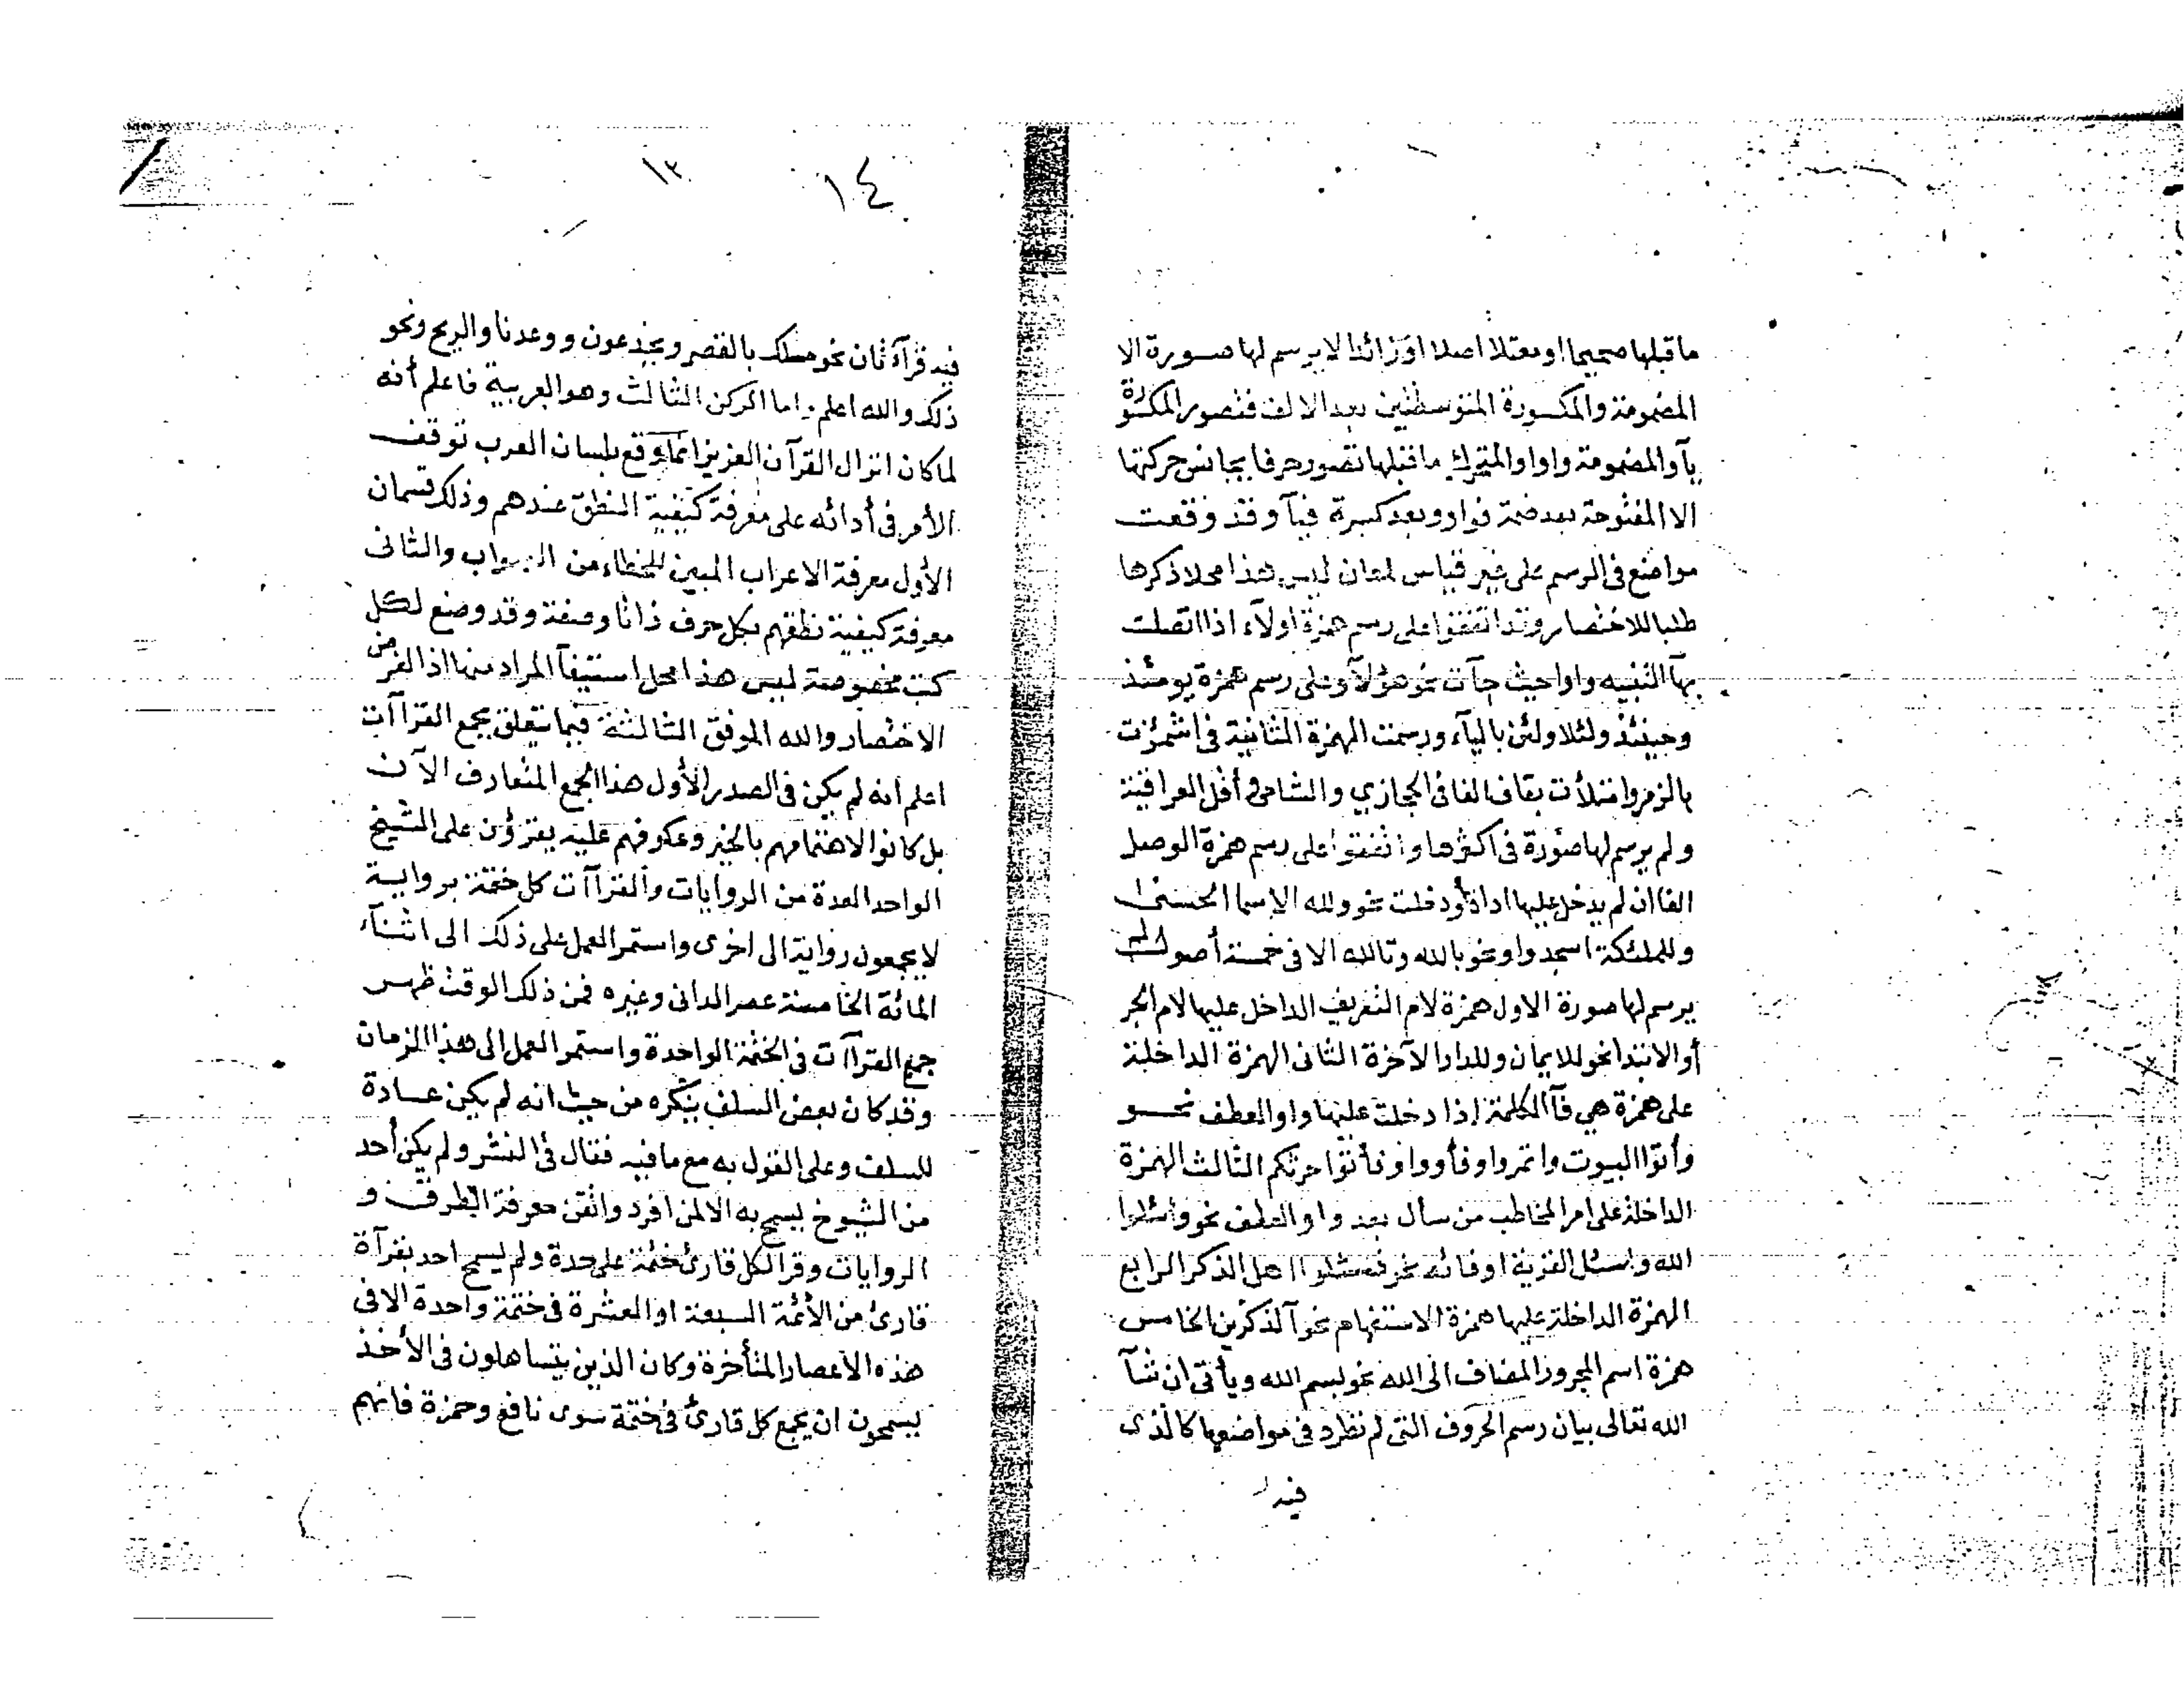 ما قبلها صحيحا او معتلا اصلا او زائدا لا يرسم لها صورة الا
المضمومة والمكسورة المتوسطتين بعد الالف فتصور المكسورة
يآ والمضمومة واوا والمتحرك ما قبلها تصور حرفا يجانس حركتها
الا المفتوحة بعد ضمة فواو وبعد كسرة فيآ وقد وقعت
مواضع في الرسم على غير قياس لمعان ليس هذا محلا ذكرها
طلبا للاختصار وقد اتفقوا على رسم همزة اولآء اذا اتصلت
بهآ التنبيه واوا حيث جآت نحو هؤلآ وعلى رسم همزة يومئذ
وحينئذ ولئلا ولئن باليآء ورسمت الهمزة الثانية في اشمئزت
بالزمر وامتلأت بقاف الفا في الحجازي والشامي وأقل العراقية
ولم يرسم لها صورة في اكثرها واتفقوا على رسم همزة الوصل
الفا ان لم يدخل عليها اداة أو دخلت نحو ولله الاسما الحسنى
وللملئكة اسجدوا ونحو بالله وتالله الا في خمسة أصول لم
يرسم لها صورة الاول همزة لام التعريف الداخل عليها لام الجر
أو الابتدا نحو للايمان وللدار الآخرة الثاني الهمزة الداخلة
على همزة هي فآ الكلمة اذا دخلت عليها واو العطف نحو
وأتوا البيوت واتمروا وفأووا وفأتوا حرثكم الثالث الهمزة
الداخلة على امر المخاطب من سأل بعد واو العطف نحو وسئلوا
الله واسئل القرية او فائه نحو فسئلوا اهل الذكر الرابع
الهمزة الداخلة عليها همزة الاستفهام نحو آلذكرين الخامس
همزة اسم المجرور المضاف الى الله نحو بسم الله ويأتى ان شآ
الله تعالى بيان رسم الحروف التى لم تطرد في مواضعها كالذى
فيه
١٤
١٣
فيه قرآة ثان نحو ملك بالقصر ويخدعون ووعدنا والريح ونحو
ذلك والله اعلم. اما الركن الثالث وهو العربية فاعلم أنه
لما كان انزال القرآن العزيز انما وقع بلسان العرب توقف
الأمر في أدائه على معرفة كيفية النطق عندهم وذلك قسمان
الأول معرفة الاعراب المبين للخطاء من الصواب والثانى
معرفة كيفية نطقهم بكل حرف ذاتا وصفة وقد وضع لكل
كتب مخصوصة ليس هذا محل استيفآ المراد منها اذ الغرض
الاختصار والله الموفق الثالثة فيما يتعلق بجمع القراآت
اعلم أنه لم يكن في الصدر الأول هذا الجمع المتعارف الآن
بل كانوا لاهتمامهم بالخير وعكوفهم عليه يقرؤن على الشيخ
الواحد العدة من الروايات والقراآت كل ختمة برواية
لا يجمعون رواية الى اخرى واستمر العمل على ذلك الى اثنآء
المائة الخامسة عصر الدانى وغيره فمن ذلك الوقت ظهر
جمع القراآت في الختمة الواحدة واستمر العمل الى هذا الزمان
وقد كان بعض السلف ينكره من حيث انه لم يكن عادة
للسلف وعلى القول به مع ما فيه فقال في النشر ولم يكن أحد
من الشيوخ يسمح به الا لمن افرد واتقن معرفة الطرق و
الروايات وقرا لكل قارئ ختمة على حدة ولم يسمح احد بقرآة
قارئ من الأئمة السبعة او العشرة في ختمة واحدة الا في
هذه الاعصار المتأخرة وكان الذين يتساهلون في الأخذ
يسمحون ان يجمع كل قارئ في ختمة سوى نافع وحمزة فانهم